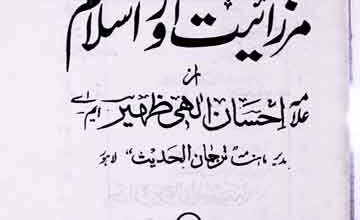 مرزائیت اور اسلام
از
علامہ احسان الہی ظہیر ایم۔اے
مدیر ماہنامہ ترجمان الحدیث" لاہور